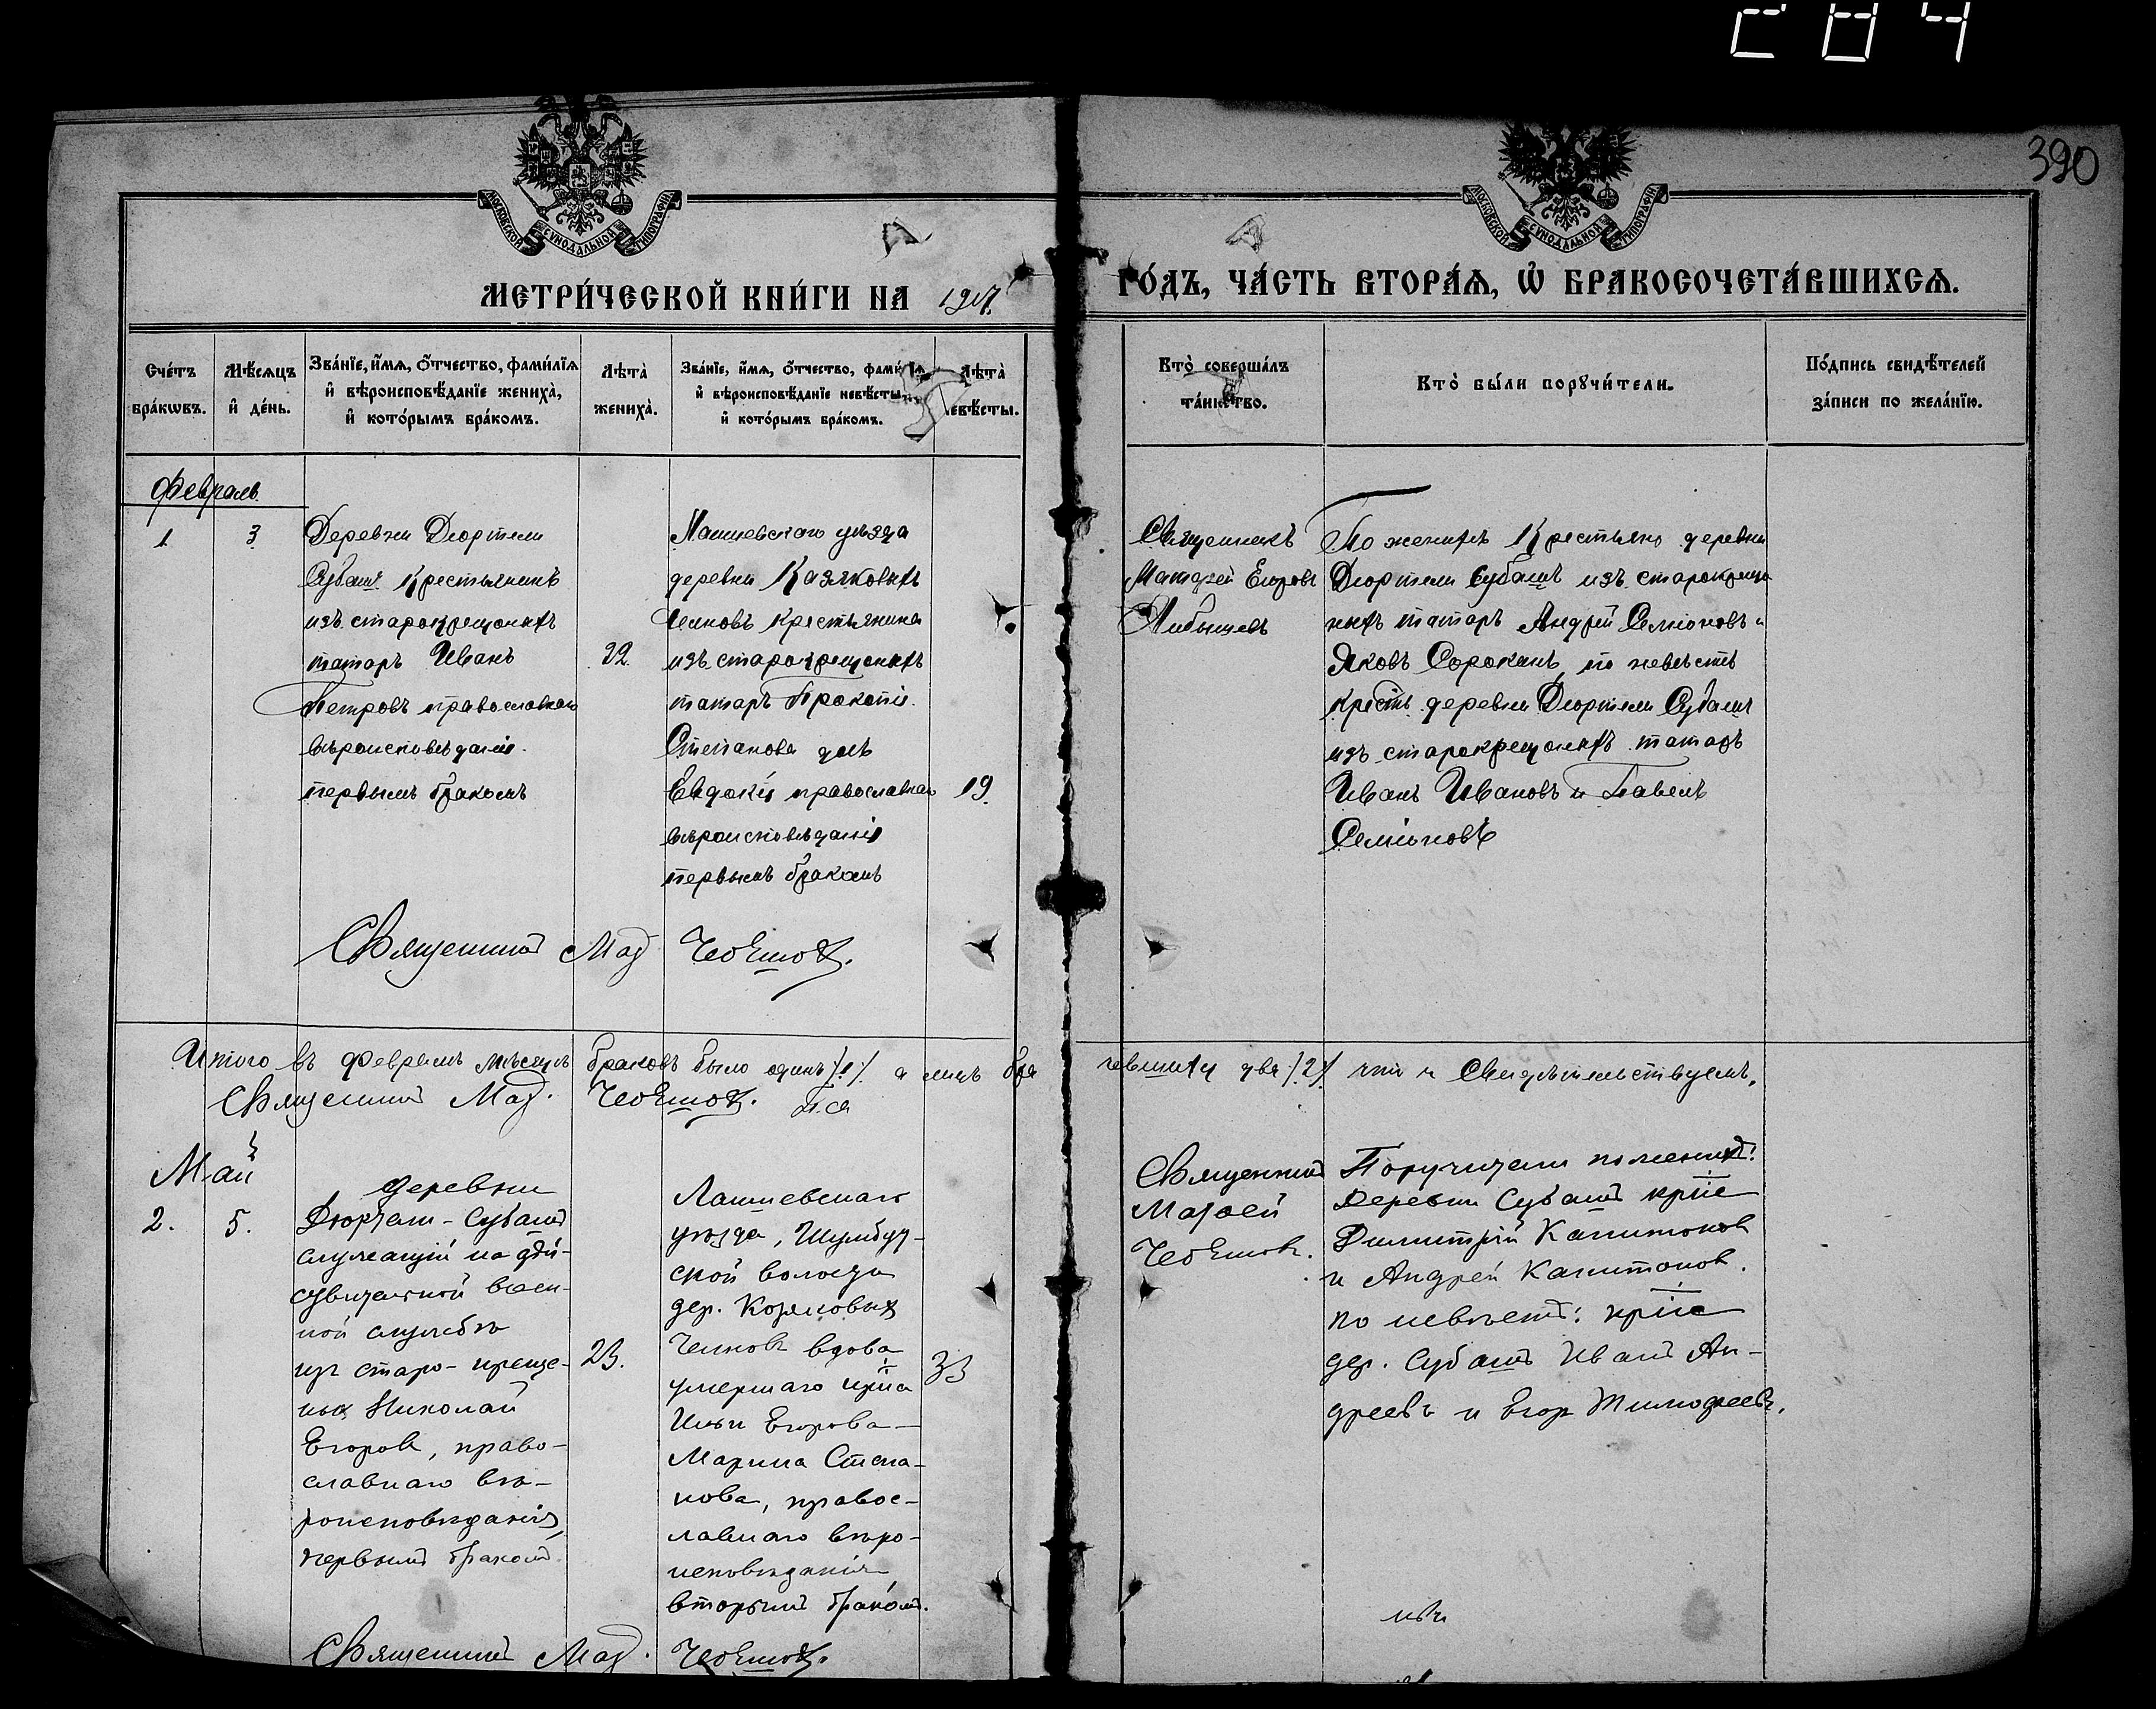 284
390
МОСКОВСКОЙ СУНОДАЛЬНОЙ ТИПОГРАФІИ
МОСКОВСКОЙ СУНОДАЛЬНОЙ ТИПОГРАФІИ
МЕТРИ́ЧЕСКОЙ КНИ́ГИ НА 1917
ГО́ДЪ, ЧА́СТЬ ВТОРА́Ѧ, Ѡ҆ БРАКОСОЧЕТА́ВШИХСѦ.
Сче́тъ
бра́кѡвъ.
Мѣ́сяцъ
и҆ де́нь.
Зва́нїе, и҆́мѧ, ѻ҆́тчество, фами́лїѧ
и҆ вѣроисповѣ́данїе жениха̀,
и҆ кото́рымъ бра́комъ.
Лѣта̀
жениха̀.
Зва́нїе, и҆́мѧ, ѻ҆́тчество, фами́лїѧ
и҆ вѣроисповѣ́данїе невѣ́сты,
и҆ кото́рымъ бра́комъ.
Лѣта̀
невѣ́сты.
Кто̀ соверша́лъ
та́инство.
Кто̀ бы́ли порꙋчи́тели.
По́дпись свидѣ́телей
за́писи по жела́нїю.
Февраль
1
3
Деревни Дюртели
Субашъ Крестьянинъ
изъ старокрещеныхъ
татаръ Иванъ
Петровъ православнаго
вѣроисповѣданія
первымъ бракомъ
22
Лаишевскаго уѣзда
деревни Казяковыхъ
Челновъ крестьянина
изъ старокрещеныхъ
татаръ Прокопія
Степанова дочь
Евдокія православнаго
вѣроисповѣданія
первымъ бракомъ
19.
Священникъ
Матѳей Егоровъ
По женихѣ Крестьяне деревни
Дюртели Субашъ изъ старокреще
ныхъ татаръ Андрей Семіоновъ и
Яковъ Сорокинъ, по невѣстѣ
крест. деревни Дюртели Субашъ
изъ старокрещеныхъ татаръ
Иванъ Ивановъ и Павелъ
Семіоновъ
Священникъ Маѳ. Чебышовъ.
Итого въ Февралѣ мѣсяцѣ браковъ было одинъ /1/ а лицъ бра
чевшихся два /2/ что и Свидѣтельствуемъ,
Священникъ Маѳ. Чебышовъ. П. ся
Май
2.
5.
деревни
Дюртели-Субашъ
служащій на дѣй-
ствительной воен-
ной службѣ
изъ старо-креще-
ныхъ Николай
Егоровъ, право-
славнаго вѣ-
роисповѣданія,
первымъ бракомъ.
23.
Лаишевскаго
уѣзда, Шумбут-
ской волости
дер. Козяковыхъ
Челновъ вдова
умершаго кр-на
Ильи Егорова —
Марина Степа-
нова, правос-
лавнаго вѣро-
исповѣданія
вторымъ бракомъ.
33
Священникъ
Матѳей
Чебышовъ.
Поручители по женихѣ:
Деревни Субашъ кр-не
Димитрій Капитоновъ
и Андрей Капитоновъ.
по невѣстѣ: кр-не
дер. Субашъ Иванъ Ан-
дреевъ и Егоръ Тимофеевъ.
Священникъ Маѳ. Чебышовъ.